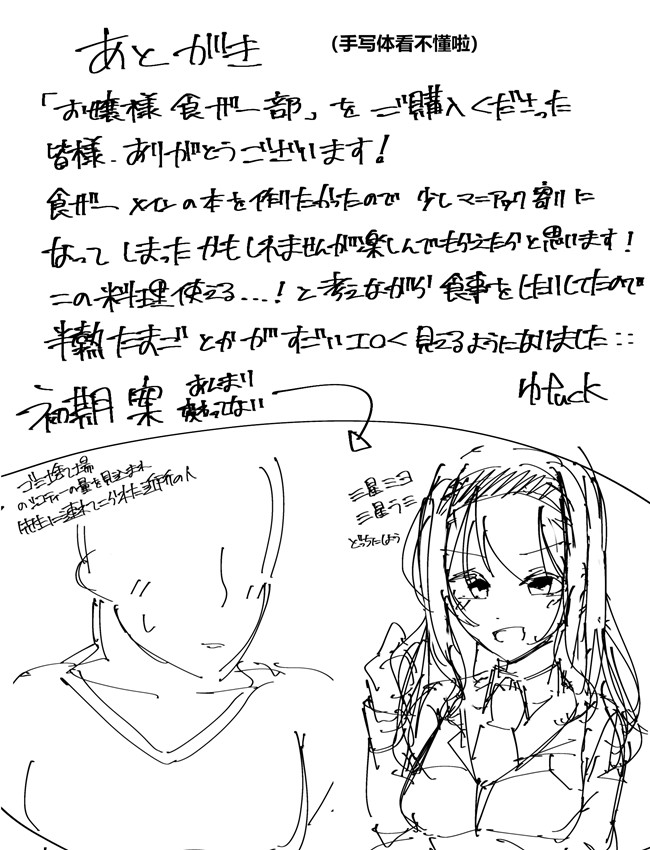 あとがき
(手写体看不懂啦)
「お嬢様食ザー部」をご購入くださった
皆様、ありがとうございます!
食ザーメインの本を作りたかったので少しマニアック寄りに
なってしまったかもしれませんが楽しんでもらえたらと思います!
この料理使える...!と考えながら食事をしたりしてたので
半熟たまごとかがすごいエロく見えるようになりました::
初期案
あんまり
変わってない
ゴミ捨て場
の量を見込まれ
先生に連れてこられた近所の人
三星ミヨ
三星ラミ
どっちだろう